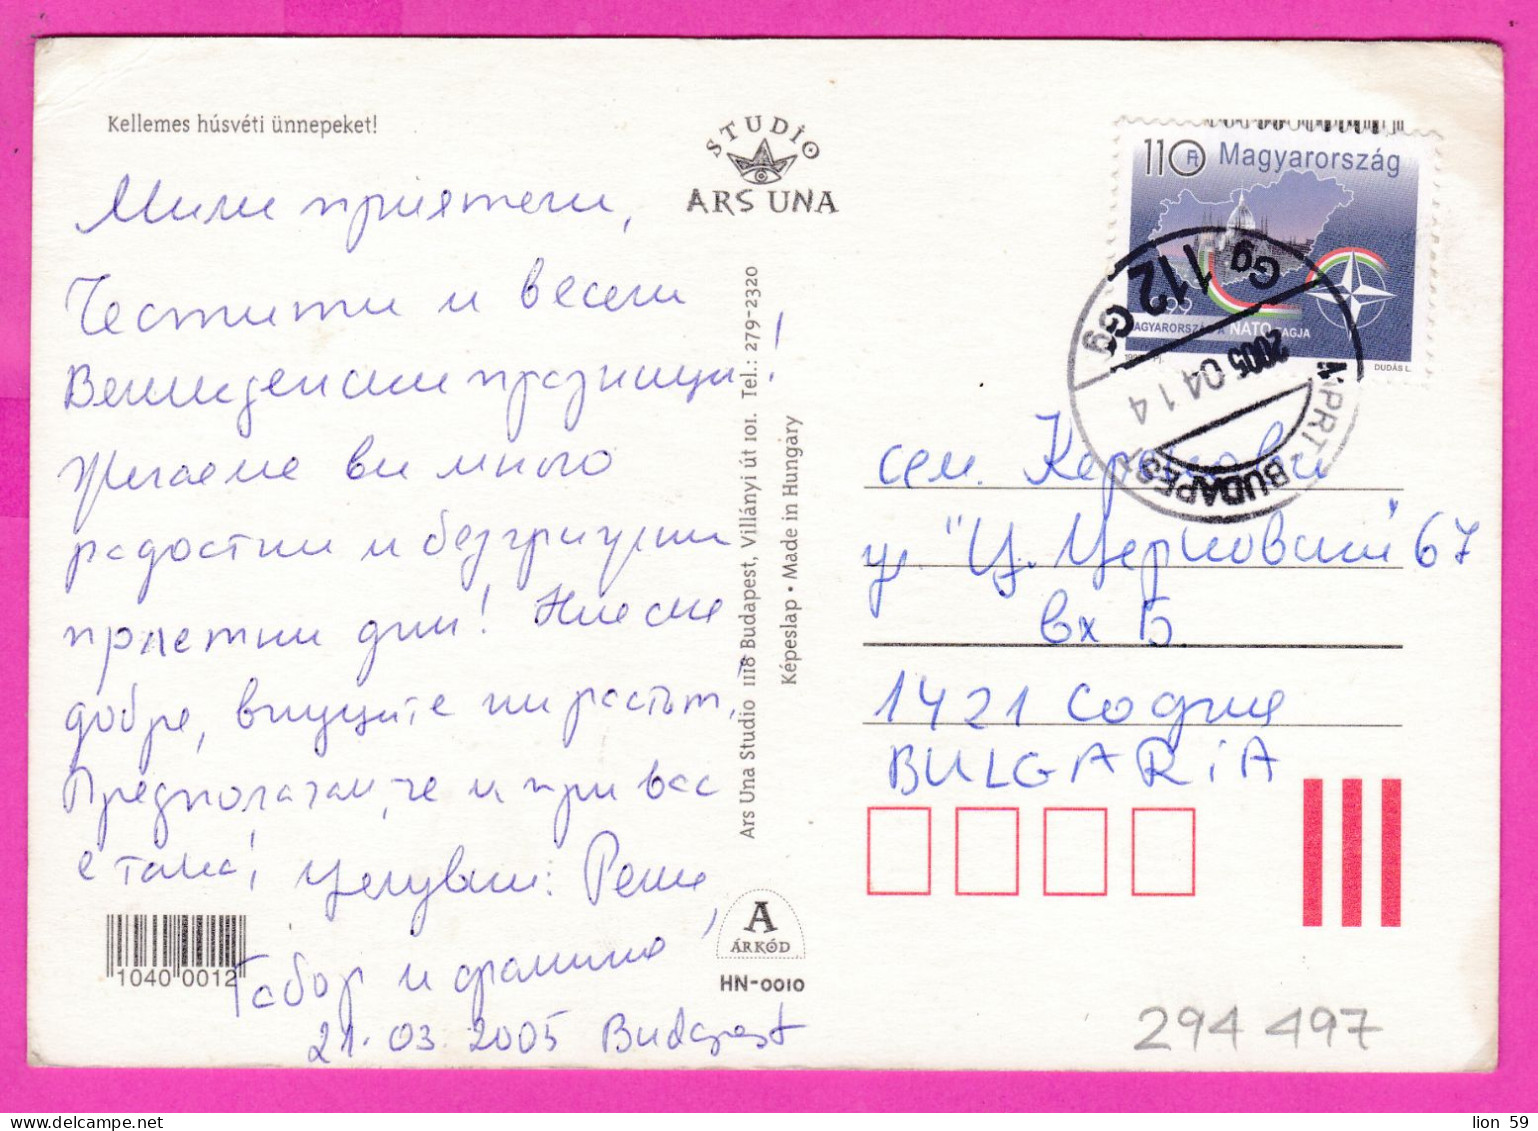 Kellemes húsvéti ünnepeket!
STUDIO
ARS UNA
Мили приятели,
Честити и весели
Великденски празници!
Желаеме ви много
радостни и безгрижни
пролетни дни! Ние сме
добре, внуците ни растът,
Предполагам, че и при вас
е така! Целувки: Рени,
Габор и фамилия
21.03.2005 Budapest
1040 0012
Ars Una Studio 1118 Budapest, Villányi út 101. Tel.: 279-2320
Képeslap • Made in Hungary
A
ÁRKÓD
HN-0010
110 Ft Magyarország
MAGYARORSZÁG A NATO TAGJA
DUDÁS L.
Gg 112 Gg
2005 04 14
BUDAPEST
сем.
ул. "Ц. Церковски" 67
вх Б
1421 София
BULGARiA
294 497
lion 59